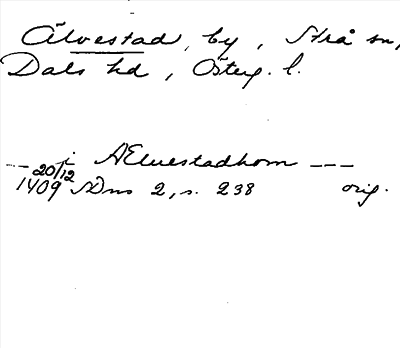 Älvestad, by, Strå sn,
Dals hd, Österg. l.
--- i AElwestadhom ---
20/12
1409 SDns 2, s. 238 orig.